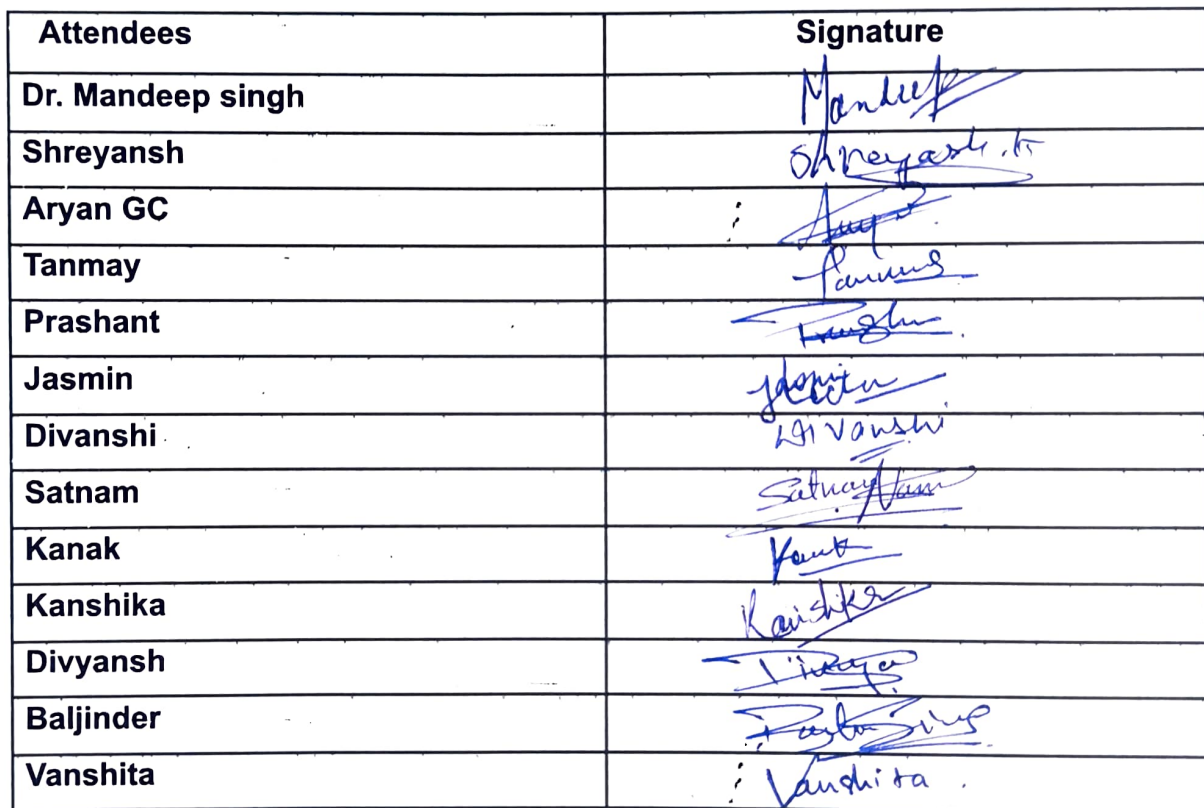 Attendees Signature
Dr. Mandeep singh Mandeep
Shreyansh Shreyash.K
Aryan GC
Tanmay
Prashant
Jasmin
Divanshi Divanshi
Satnam Satnam
Kanak Kanak
Kanshika Kanshika
Divyansh Divya
Baljinder
Vanshita Vanshita